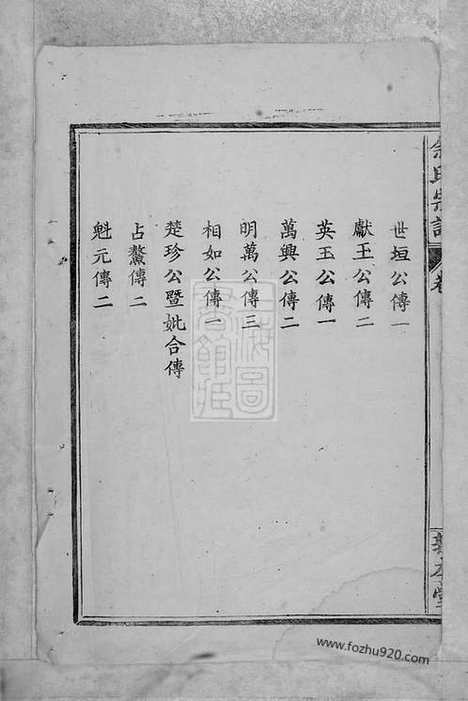 世垣公傳一
獻玉公傳二
英玉公傳一
萬興公傳二
明萬公傳三
相如公傳一
楚珍公暨妣合傳
占鰲傳二
魁元傳二
www.fozhu920.com